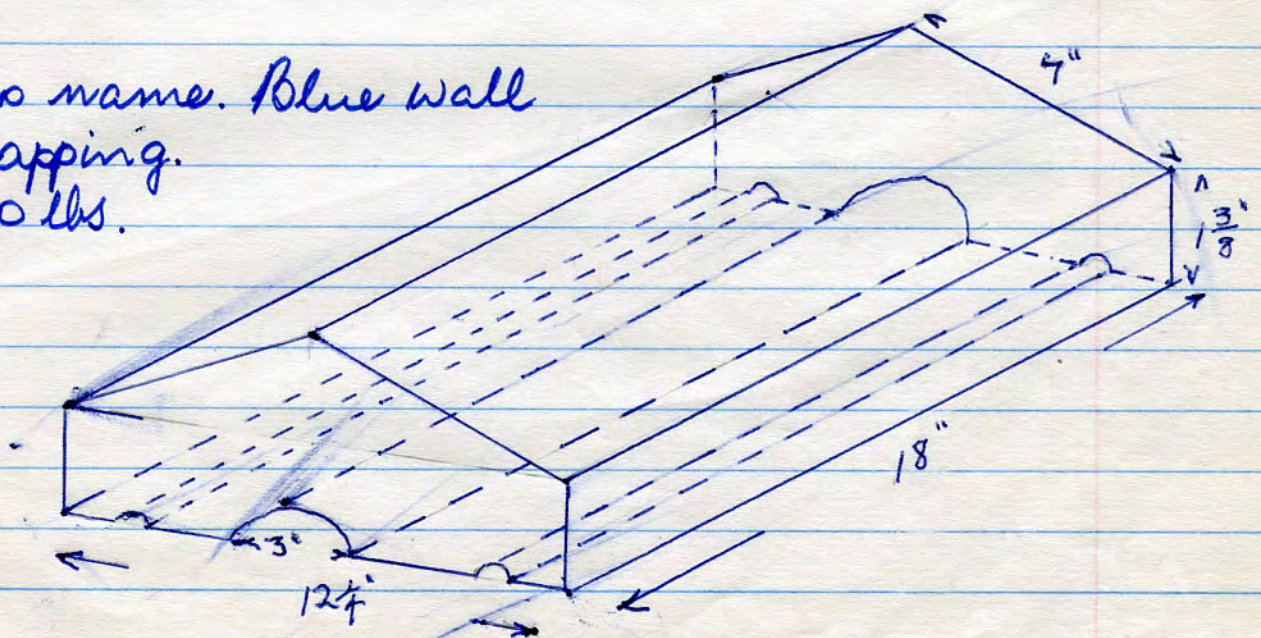 name. Blue wall
apping.
lbs.
1 3/8"
18"
3"
12 1/4"